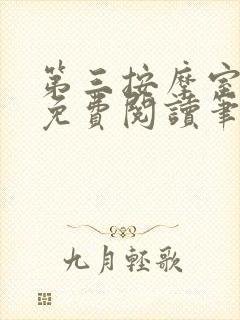 第三按摩室
免費閱讀筆
九月輕歌